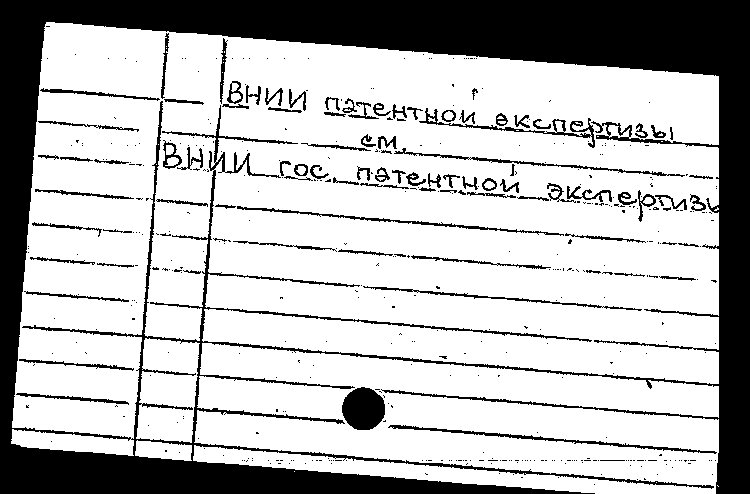 ВНИИ патентной экспертизы
см.
ВНИИ гос. патентной экспертизы